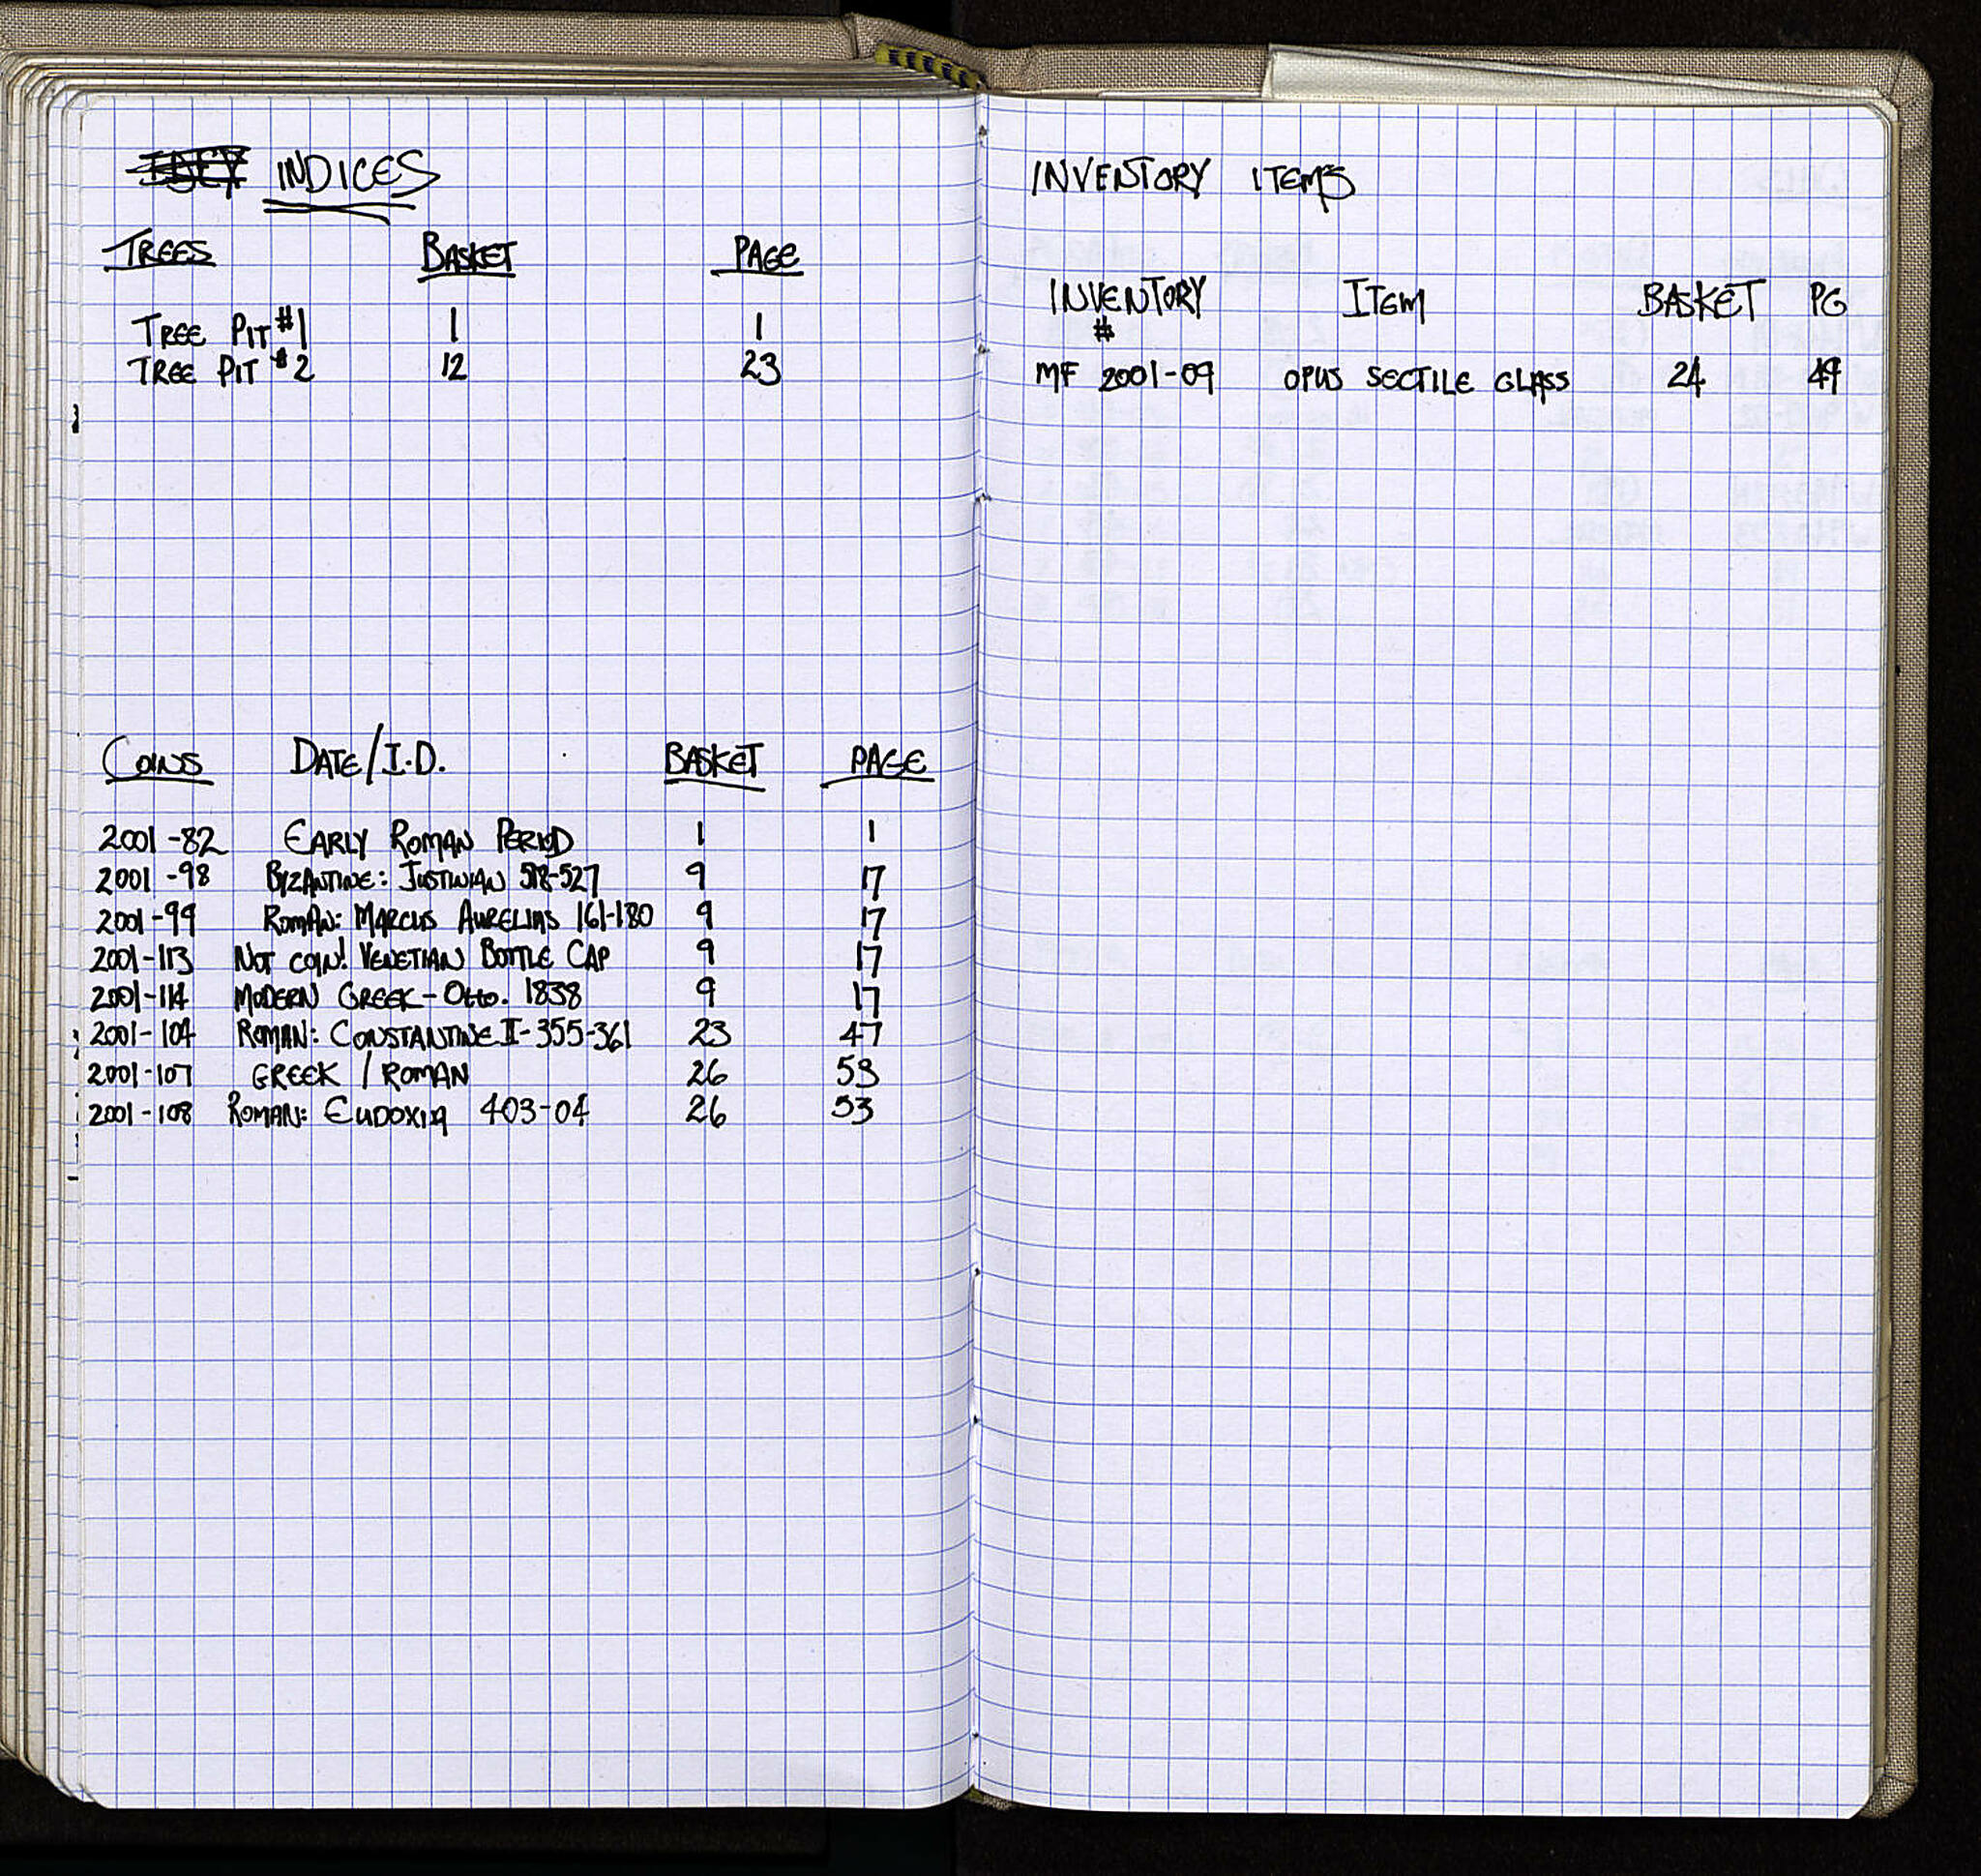 INDICES
TREES BASKET PAGE
TREE PIT #1 1 1
TREE PIT #2 12 23
COINS DATE/I.D. BASKET PAGE
2001-82 EARLY ROMAN PERIOD 1 1
2001-98 BYZANTINE: JUSTINIAN 518-527 9 17
2001-99 ROMAN: MARCUS AURELIUS 161-180 9 17
2001-113 NOT COIN! VENETIAN BOTTLE CAP 9 17
2001-114 MODERN GREEK-Otto. 1838 9 17
2001-104 ROMAN: CONSTANTINE II-355-361 23 47
2001-107 GREEK / ROMAN 26 53
2001-108 ROMAN: EUDOXIA 403-04 26 53
INVENTORY ITEMS
INVENTORY ITEM BASKET PG
#
MF 2001-09 OPUS SECTILE GLASS 24 49